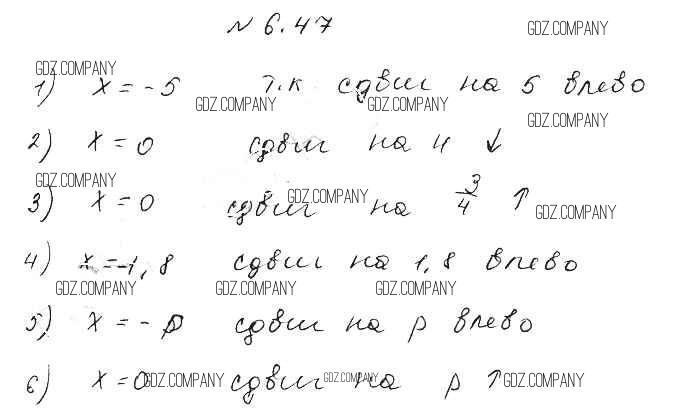 N 6.47
GDZ.COMPANY
GDZ.COMPANY
1) x = -5 т.к сдвиг на 5 влево
GDZ.COMPANY GDZ.COMPANY
GDZ.COMPANY
2) x = 0 сдвиг на 4 ↓
GDZ.COMPANY
3) x = 0 сдвиг на 3/4 ↑
GDZ.COMPANY GDZ.COMPANY
4) x = -1,8 сдвиг на 1,8 влево
GDZ.COMPANY GDZ.COMPANY GDZ.COMPANY
5) x = -p сдвиг на p влево
6) x = 0 сдвиг на p ↑
GDZ.COMPANY GDZ.COMPANY GDZ.COMPANY